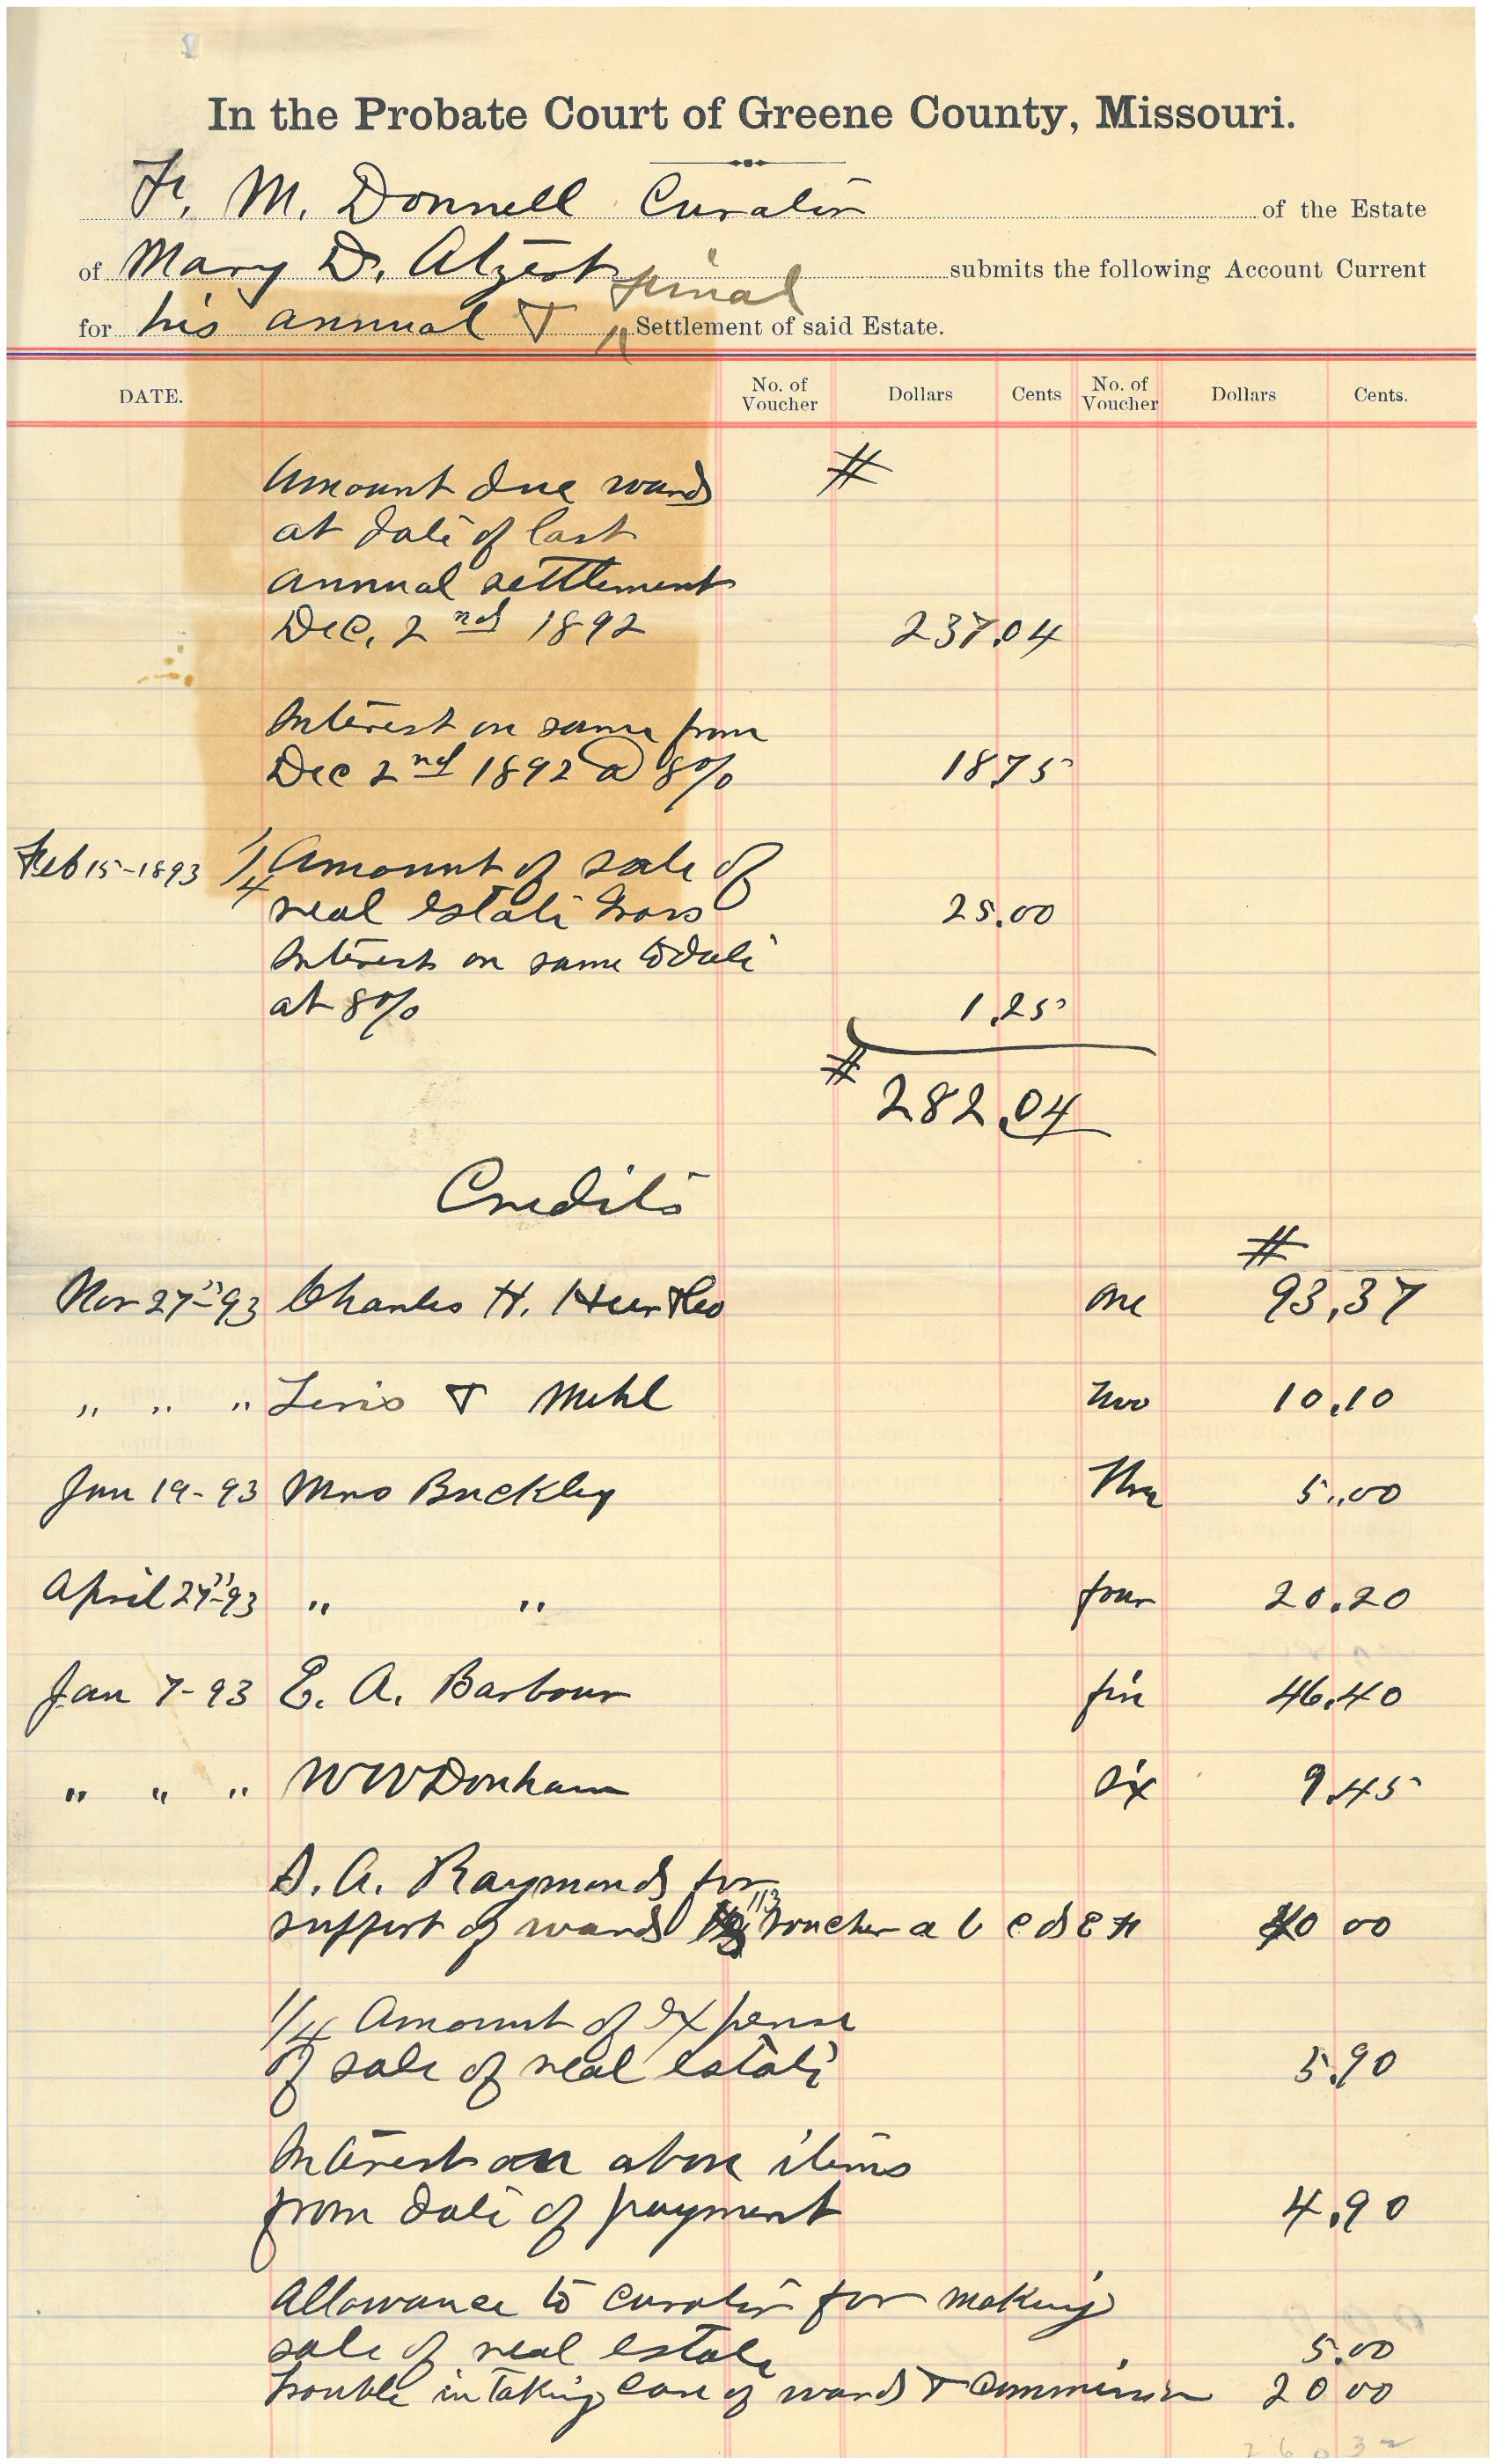 In the Probate Court of Greene County, Missouri.
F. M. Donnell Curator of the Estate
of Mary D. Alzest submits the following Account Current
final
for his annual & Settlement of said Estate.
DATE. No. of Voucher Dollars Cents No. of Voucher Dollars Cents.
Amount due ward #
at date of last
annual settlement
Dec. 2nd 1892 237.04
Interest on same from
Dec 2nd 1892 @ 8% 18.75
Feb 15-1893 1/4 Amount of sale of
real estate 25.00
Interest on same to date
at 8% 1.25
# 282.04
Credits
#
Nov 27"-93 Charles H. & Co one 93.37
" " " & Mehl two 10.10
Jan 19-93 Mrs Buckley Three 5.00
April 27"-93 " " four 20.20
Jan 7-93 E. A. Barbour five 46.40
" " " W W Donham six 9.45
D. A. Raymond for
support of ward voucher a b c d e 40 00
1/4 Amount of expense
of sale of real estate 5.90
Interest on above items
from date of payment 4.90
Allowance to curator for making
sale of real estate 5.00
trouble in taking care of ward & Commission 20 00